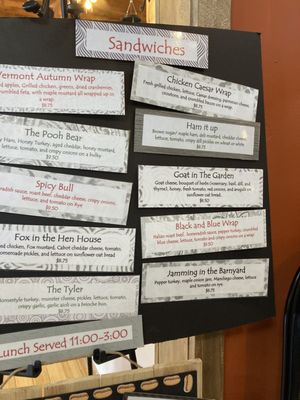 Sandwiches
Vermont Autumn Wrap
apples, Grilled chicken, greens, dried cranberries,
crumbled feta, with maple mustard all wrapped up in
a wrap
$8.75
The Pooh Bear
Ham, Honey Turkey, aged cheddar, honey mustard,
lettuce, tomato, and crispy onions on a bulky
$9.50
Spicy Bull
Horseradish sauce, roast beef, cheddar cheese, crispy onions,
lettuce, and tomato on Rye
$9.50
Fox in the Hen House
chicken, Fox ham, Cabot cheddar, tomato,
homemade pickles, and lettuce on sunflower oat bread
$8.75
The Tyler
Homestyle turkey, monster cheese, pickles, lettuce, tomato,
crispy garlic, garlic aioli on a brioche bun
$8.75
Lunch Served 11:00-3:00
Chicken Caesar Wrap
Fresh grilled chicken, lettuce, Caesar dressing, parmesan cheese,
croutons, and crumbled bacon on a wrap
$8.75
Ham it up
Brown sugar maple ham, deli mustard, cheddar cheese,
lettuce, tomato, crispy dill pickles on wheat or white
$8.75
Goat in The Garden
Goat cheese, bouquet of herbs (rosemary, basil, dill, and
thyme), honey, fresh tomato, red onions, and arugula on
sunflower oat bread
$9.50
Black and Blue Wrap
Italian roast beef, horseradish sauce, pepper turkey, crumbled
blue cheese, lettuce, tomato and crispy onions on a wrap
$9.75
Jamming in the Barnyard
Pepper turkey, maple onion jam, Manchego cheese, lettuce
and tomato on rye
$9.75